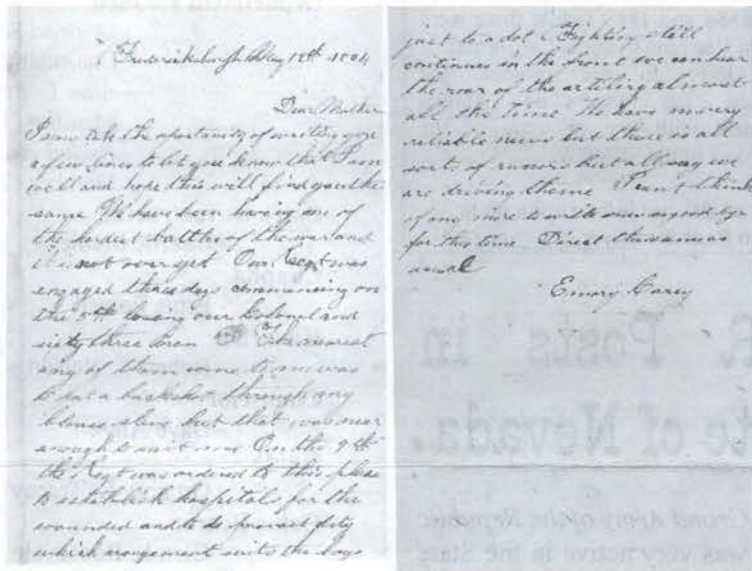 Fredericksburgh May 12th 1864
Dear Mother
I now take the oportunity of writing you
a few lines to let you know that I am
well and hope this will find you the
same We have been having one of
the hardest battles of the war and
it is not over yet Our Regt was
engaged three days commencing on
the 5th losing our Colonel and
sixty three men The nearest
any of them come to me was
to put a buckshot through my
blouse sleve but that was near
enough to suit me On the 9th
the Regt was ordered to this place
to establish hospitals for the
wounded and to do provost duty
which arrangement suits the boys
just to a dot Fighting still
continues in the front we can hear
the roar of the artilery almost
all the time We have no very
reliable news but there is all
sorts of rumors but all say we
are driving them I cant think
of any more to write now so good bye
for this time Direct the same as
usual
Emory Carey
R. Posts in
te of Nevada.
Grand Army of the Republic
was very active in the State